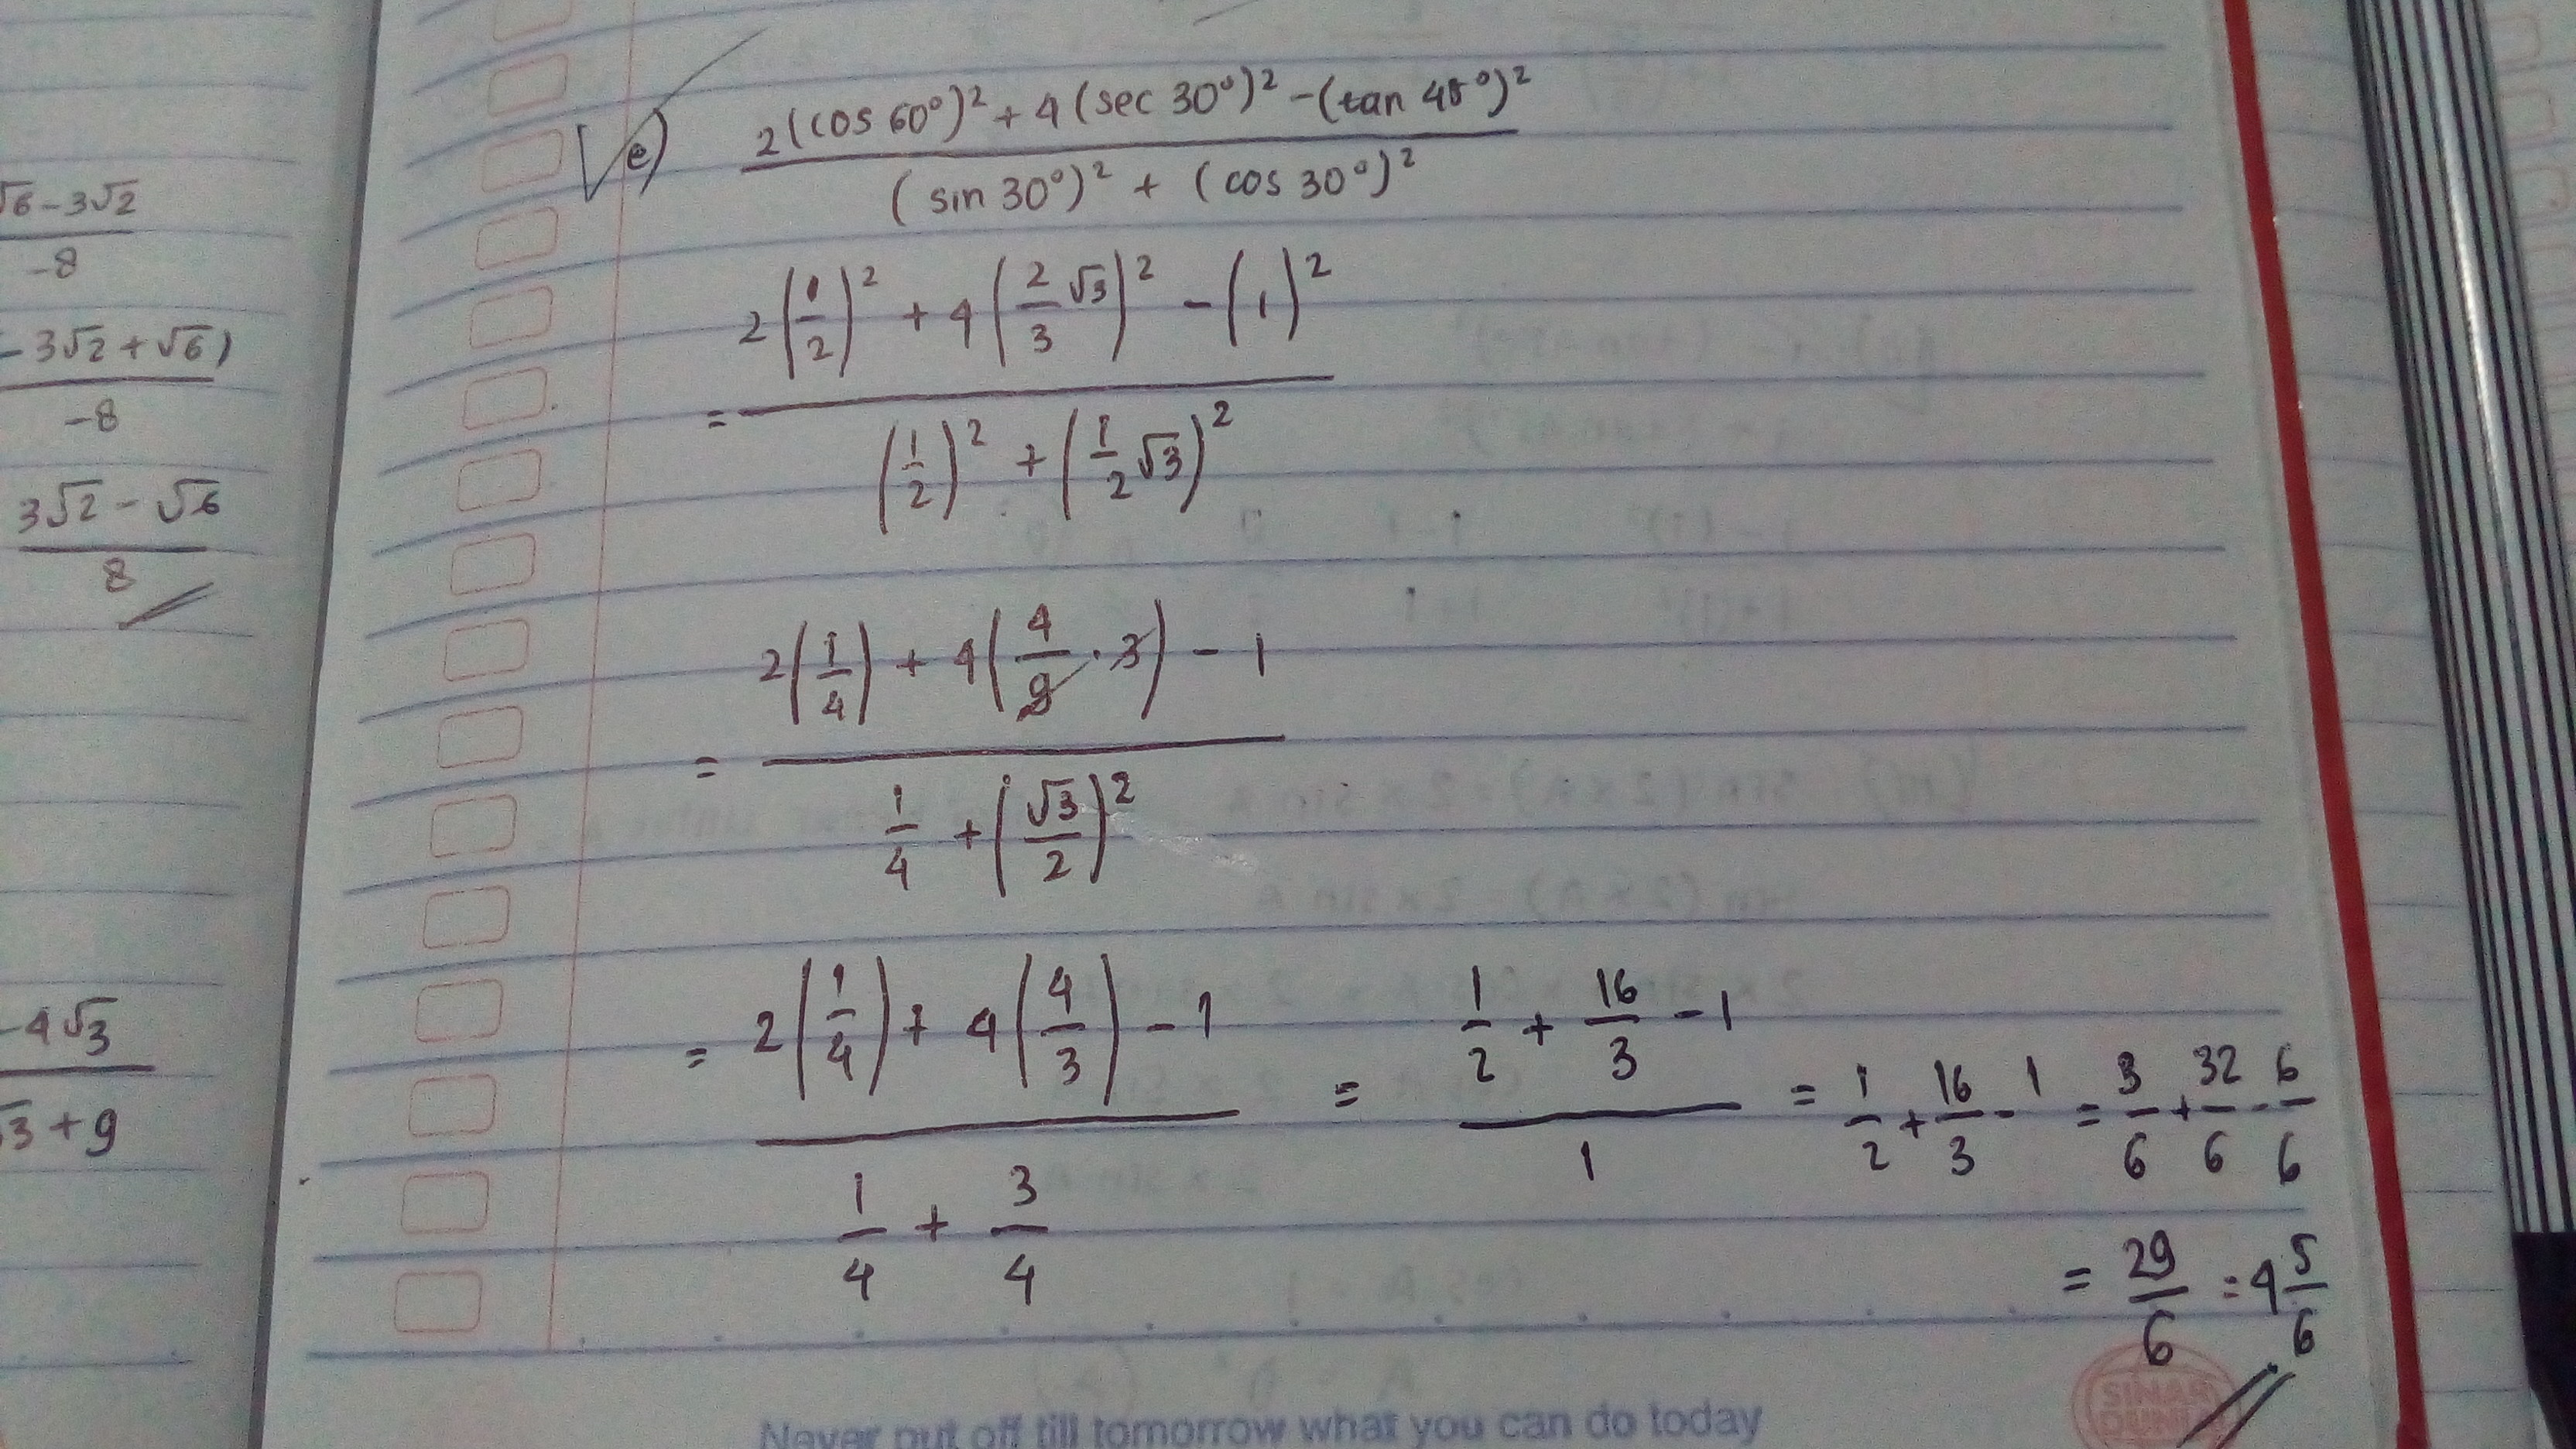 √6-3√2
-8
-3√2+√6)
-8
3√2-√6
8
-4√3
√3+9
e) 2(cos 60°)² + 4(sec 30°)² - (tan 45°)²
(sin 30°)² + (cos 30°)²
2(1/2)² + 4(2/3 √3)² - (1)²
=
(1/2)² + (1/2 √3)²
2(1/4) + 4(4/9 · 3) - 1
=
1/4 + (√3/2)²
= 2(1/4) + 4(4/3) - 1 = 1/2 + 16/3 - 1 = 1/2 + 16/3 - 1 = 3/6 + 32/6 - 6/6
1/4 + 3/4 1
= 29/6 = 4 5/6
SINAR DUNIA
Never put off till tomorrow what you can do today